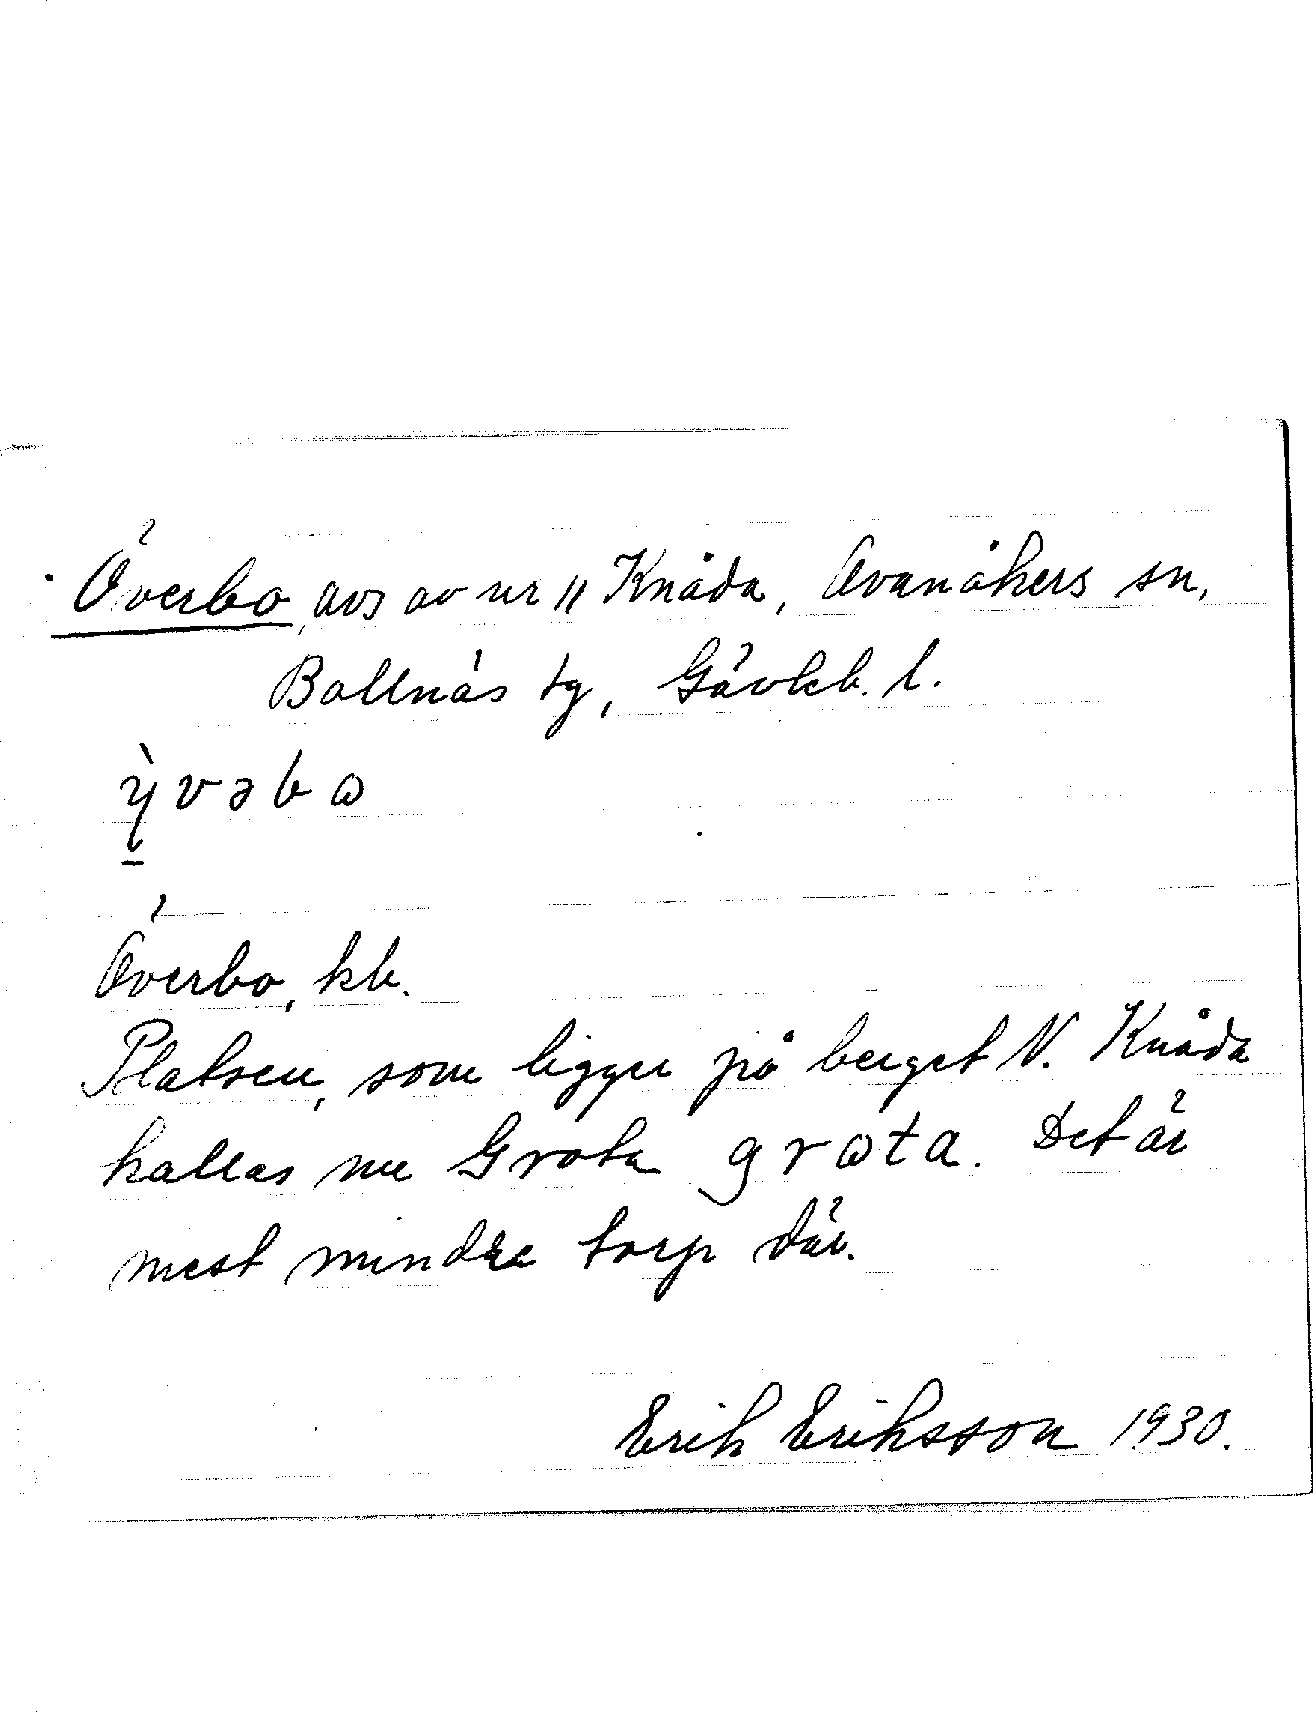 Överbo, avs av nr 11 Knåda, Ovanåkers sn,
Bollnäs tg, Gävleb. l.
ỳvəbω
Överbo, kb.
Platsen, som ligger på berget V. Knåda
kallas nu Grota grωta. Det är
mest mindre torp där.
Erik Eriksson 1930.